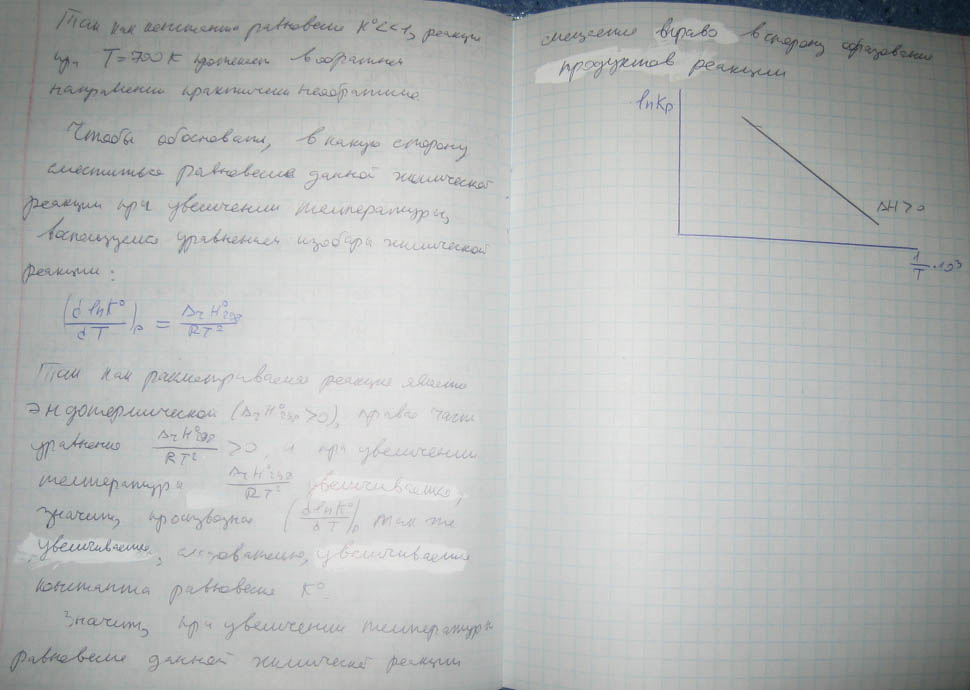 Так как константа равновесия K°<<1, реакция
при T=700 K протекает в обратном
направлении практически необратимо.
Чтобы обосновать, в какую сторону
сместиться равновесие данной химической
реакции при увеличении температуры,
воспользуемся уравнением изобары химической
реакции:
(d lnK°/dT)p = ΔrH°298/RT²
Так как рассматриваемая реакция является
эндотермической (ΔrH°298>0), правая часть
уравнения ΔrH°298/RT² >0, и при увеличении
температуры ΔrH°298/RT² увеличивается,
значит, производная (d lnK°/dT)p так же
увеличивается, следовательно, увеличивается
константа равновесия K°.
Значит, при увеличении температуры
равновесие данной химической реакции
смещается вправо в сторону образования
продуктов реакции
lnKp
ΔH>0
1/T · 10³